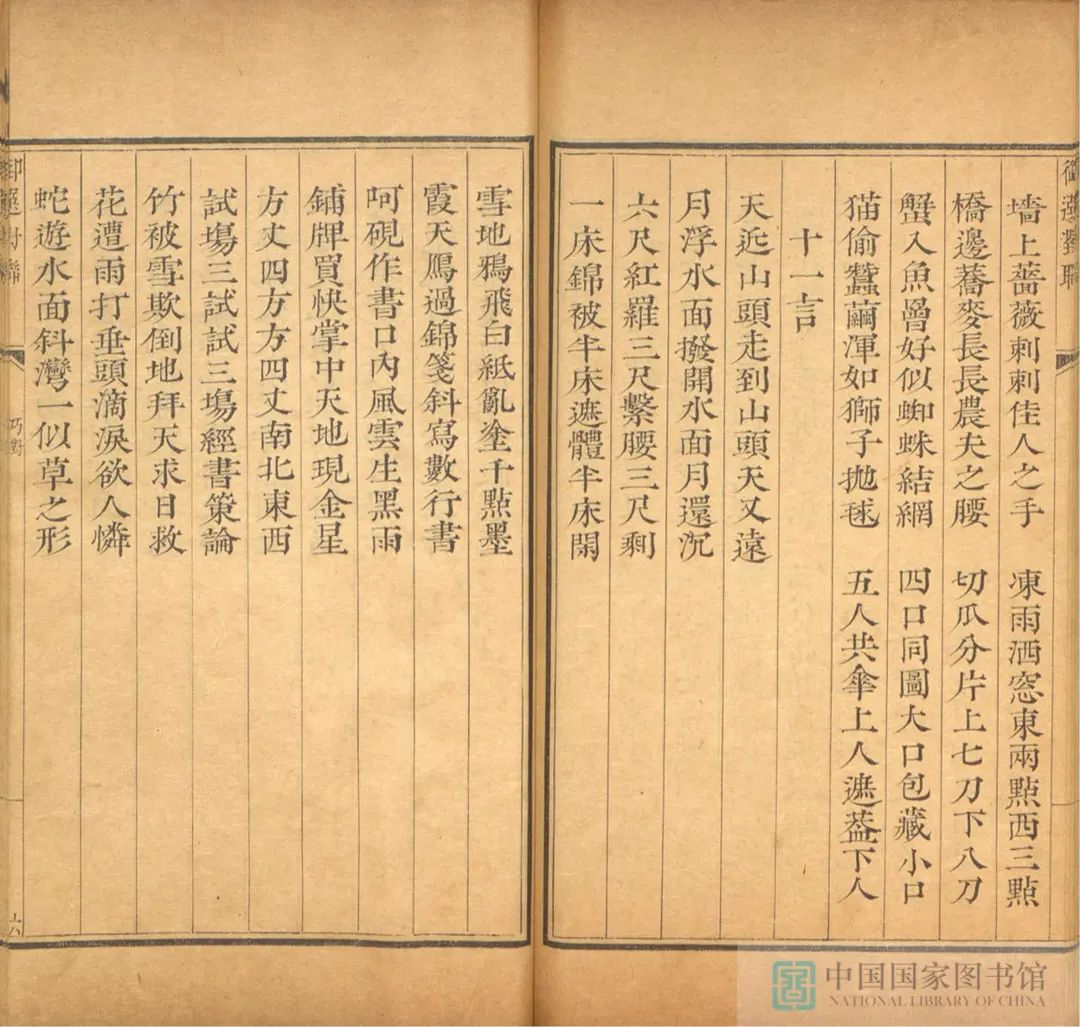 御選對聯
墻上薔薇刺刺佳人之手 凍雨洒窓東兩點西三點
橋邊蕎麥長長農夫之腰 切瓜分片上七刀下八刀
蟹入魚罾好似蜘蛛結網 四口同圖大口包藏小口
猫偷蠶繭渾如獅子抛毬 五人共傘上人遮葢下人
十一言
天近山頭走到山頭天又遠
月浮水面撥開水面月還沉
六尺紅羅三尺繫腰三尺剩
一床錦被半床遮體半床閑
雪地鴉飛白紙亂塗千點墨
霞天鴈過錦箋斜寫數行書
呵硯作書口內風雲生黑雨
鋪牌買快掌中天地現金星
方丈四方方四丈南北東西
試塲三試試三塲經書策論
竹被雪欺倒地拜天求日救
花遭雨打垂頭滴淚欲人憐
蛇遊水面斜灣一似草之形
御選對聯 巧對 六
中国国家图书馆
NATIONAL LIBRARY OF CHINA